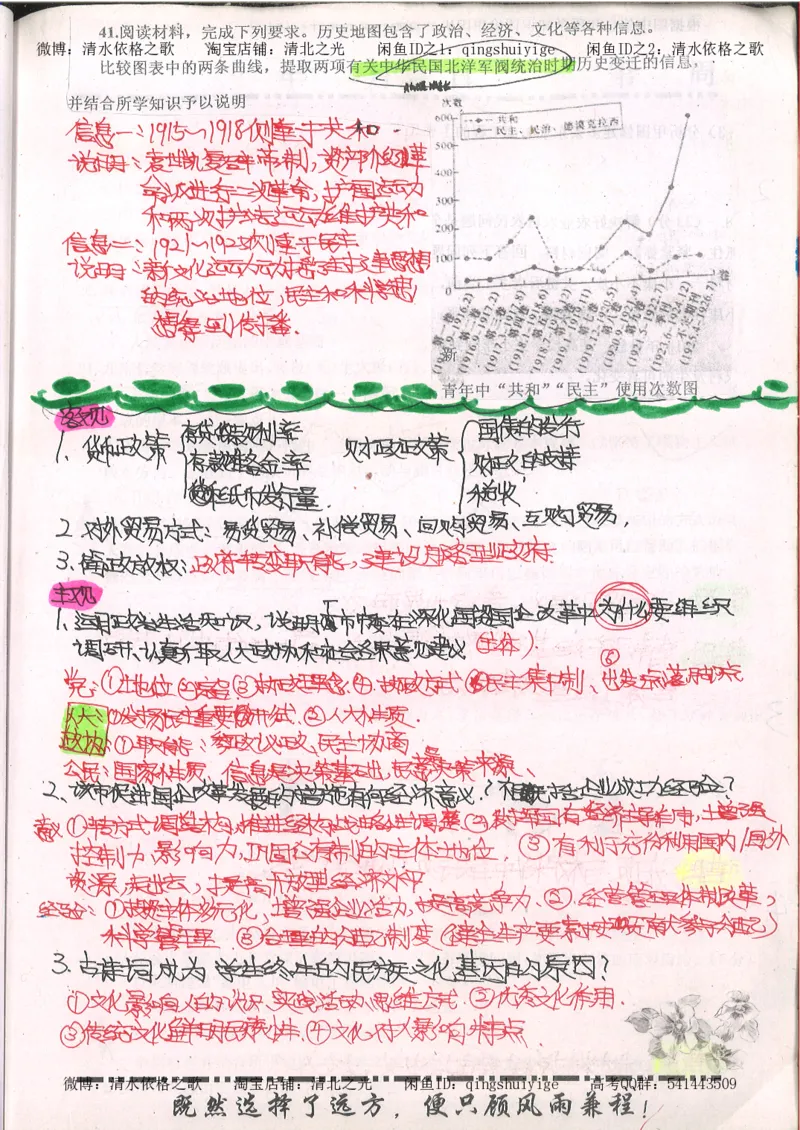 41.阅读材料，完成下列要求。历史地图包含了政治、经济、文化等各种信息。
微博：清水依格之歌 淘宝店铺：清北之光 闲鱼ID之1：qingshuiyige 闲鱼ID之2：清水依格之歌
比较图表中的两条曲线，提取两项有关中华民国北洋军阀统治时期历史变迁的信息，
并结合所学知识予以说明
信息一：1915～1918侧重于共和
说明：袁世凯复辟帝制，资产阶级革
命派进行二次革命，护国运动
和两次护法运动维护共和
信息二：1921～1925侧重于民主
说明：新文化运动动摇了封建思想
的统治地位，民主和科学思
想得到传播.
次数
600
500
400
300
200
100
0
共和
民主、民治、德谟克拉西
卷
新
青年中“共和”“民主”使用次数图
客观
1、货币政策 存贷款利率
存款准备金率
纸币发行量.
财政政策 国债的发行
财政的支持
税收
2、对外贸易方式：易货贸易、补偿贸易、回购贸易、互购贸易，
3、简政放权：政府转变职能，建设服务型政府.
主观
1、运用政治生活知识，说明T市市委在深化国资国企改革中为什么要组织
调研、认真听取人大政协和社会各界意见建议（主体）
党：①地位 ②宗旨 ③执政理念 ④执政方式 ⑤民主集中制、⑥出发点落脚点
人大：①发扬民主重要形式. ②人大性质.
政协：①职能：参政议政、民主协商
公民：国家性质，信息是决策基础，民意是决策来源、
2、该市促进国企改革发展的措施有何经济意义？
意义 ①转方式调结构，推进经济结构战略性调整 ②发挥国有经济主导作用，增强
控制力影响力，巩固公有制的主体地位. ③有利于充分利用国内/国外
资源，走出去，提高开放型经济水平.
经验：①投资主体多元化，增强企业活力，提高竞争力. ②、经营管理体制改革，
科学管理 ③合理的分配制度（健全生产要素按贡献参与分配）
3、古诗词成为学生终生的民族文化基因的原因？
①文化影响人的认识、实践活动、思维方式. ②优秀文化作用.
③传统文化鲜明民族性. ④文化对人影响特点.
微博：清水依格之歌 淘宝店铺：清北之光 闲鱼ID：qingshuiyige 高考QQ群：541443509
既然选择了远方，便只顾风雨兼程！